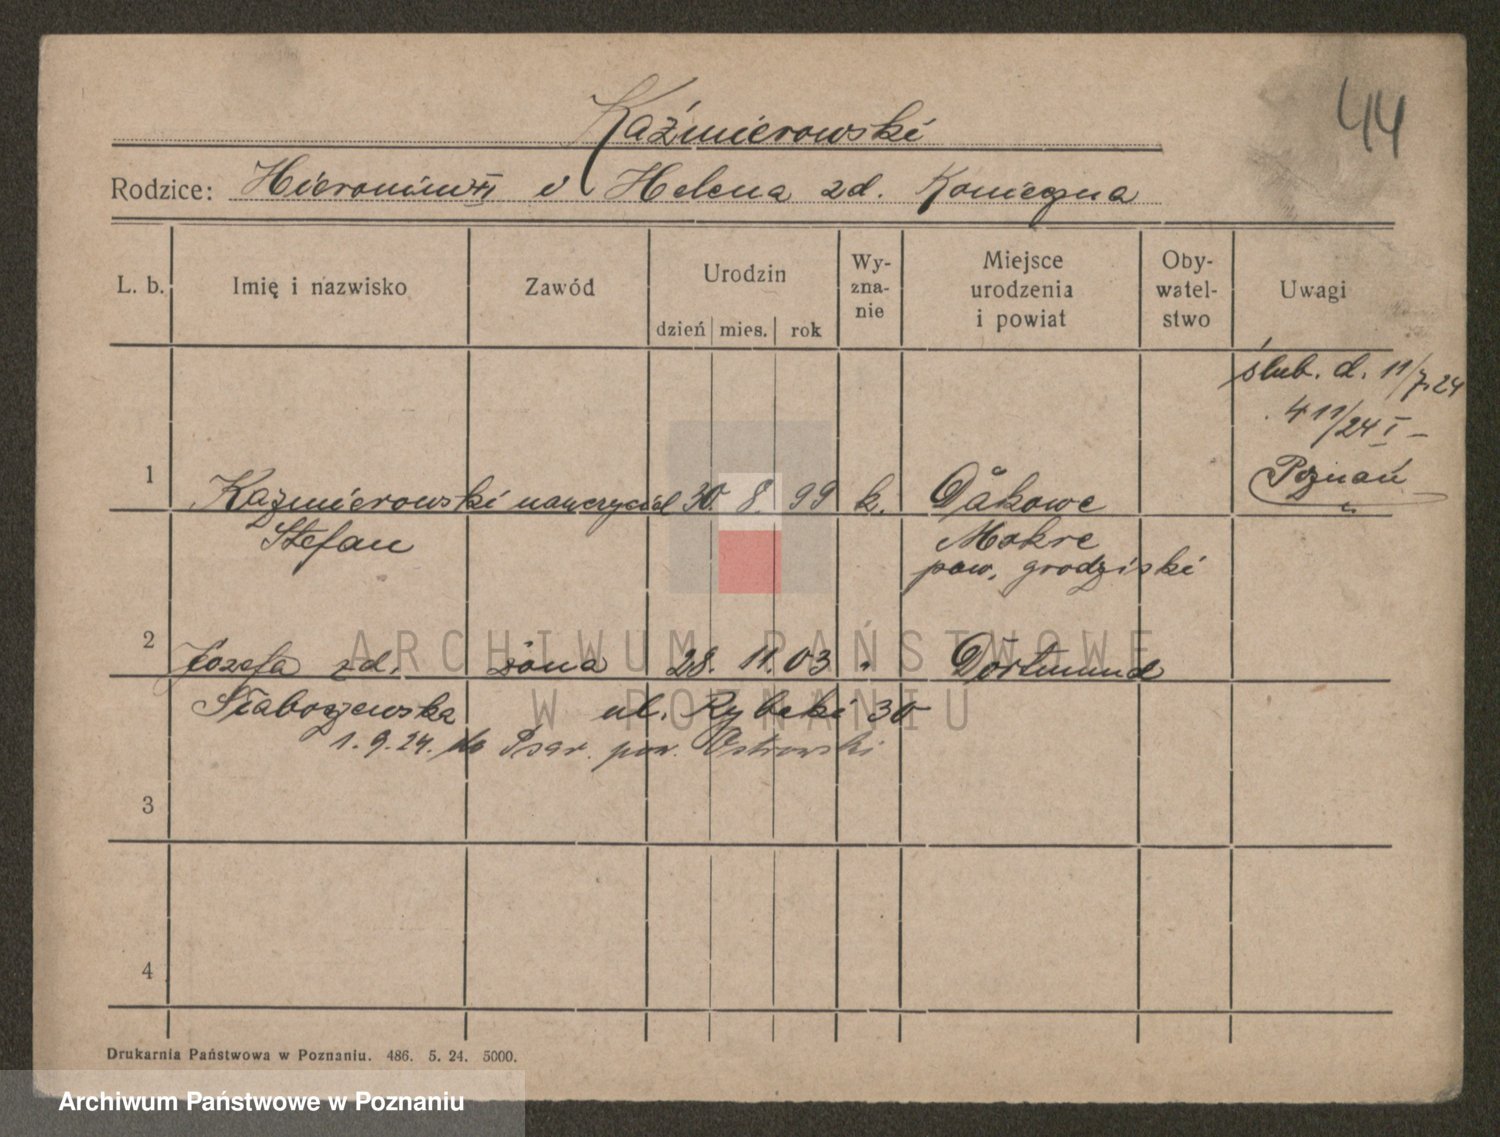 44
Kaźmierowski
Rodzice: Hieronim i Helena zd. Konieczna
L. b. Imię i nazwisko Zawód Urodzin dzień mies. rok Wy-zna-nie Miejsce urodzenia i powiat Oby-watel-stwo Uwagi
ślub. d. 11/7.24
411/24 I
Poznań
1 Kaźmierowski nauczyciel 30. 8. 99 k. Dakowe
Stefan Mokre
pow. grodziski
2 Józefa zd. żona 28. 11. 03 " Dortmund
Szaboszewska ul. Rybaki 30
1. 9. 24. do pow. Ostrowski
3
4
Drukarnia Państwowa w Poznaniu. 486. 5. 24. 5000.
ARCHIWUM PAŃSTWOWE
W POZNANIU
Archiwum Państwowe w Poznaniu